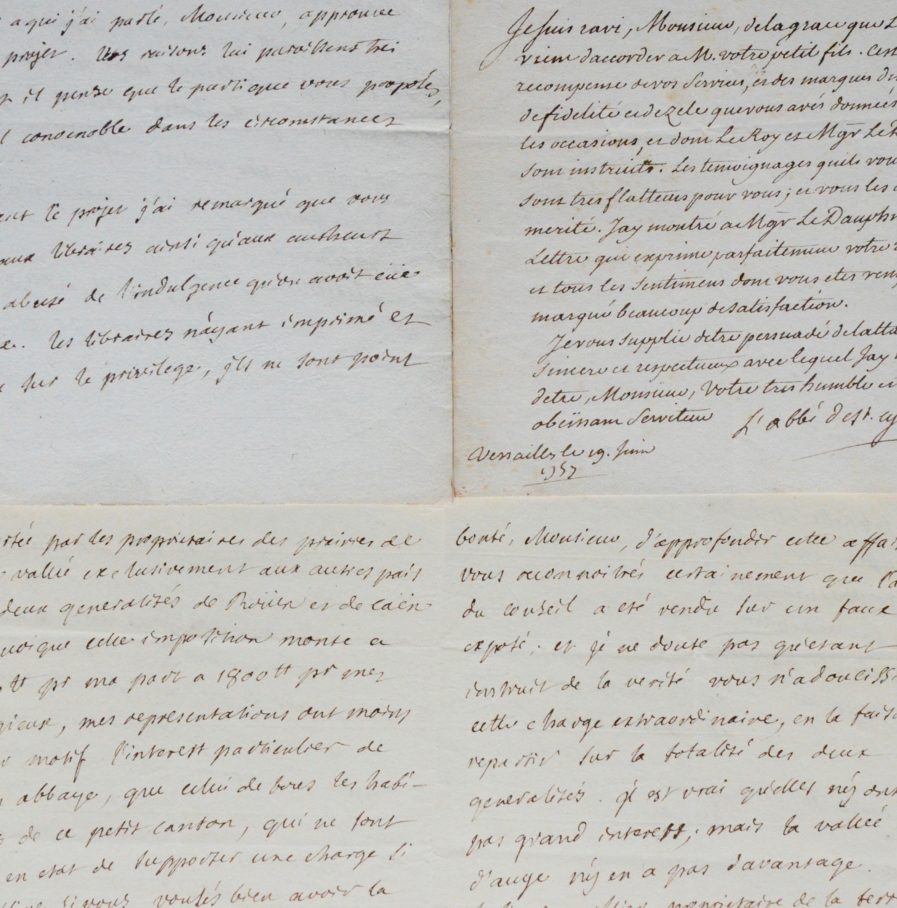 a qui j'ai parlé, Monsieur, approuve
projet. Vos raisons lui paroissent tres
et il pense que le parti que vous proposés,
convenable dans les circonstances
le projet j'ai remarqué que vous
aux libraires ainsi qu'aux autheurs
abusé de l'indulgence qu'on avoit eüe
les libraires n'ayant imprimé et
sur le privilege, ils ne sont point
Je suis ravi, Monsieur, de la grace que L
vient d'accorder a M. votre petit fils. C'est
recompense de vos services, et des marques de
de fidelité et de zele que vous avés données
les occasions, et dont Le Roy et Mgr Le D
sont instruits. Les temoignages qu'ils vou
sont tres flatteurs pour vous; et vous les a
merité. J'ay montré a Mgr Le Dauphin
Lettre qui exprime parfaitement votre
et tous les sentimens dont vous etes rem
marqué beaucoup de satisfaction.
Je vous supplie d'etre persuadé de l'atta
sincere et respectueux avec lequel J'ay
d'etre, Monsieur, Votre tres humble et
obeissant Serviteur L'abbé de St. Cy
Versailles le 19. Juin
1757
par les proprietaires des prairies de
vallée exclusivement aux autres païs
deux generalités de Roüen et de Caën
quoique cette imposition monte a
tt pr ma part a 1800 tt pr mes
religieux, mes representations ont moins
motif l'interest particulier de
abbaye, que celui de tous les habi-
de ce petit canton, qui ne sont
en etat de supporter une charge si
si vous voulés bien avoir la
bonté, Monsieur, d'approfondir cette affai
vous reconnoitrés certainement que l'a
du conseil a eté rendu sur un faux
exposé; et je ne doute pas qu'etant
instruit de la verité vous n'adouciss
cette charge extraordinaire, en la fais
repartir sur la totalité des deux
generalités. il est vrai qu'elles n'y ont
pas grand interest; mais la vallée
d'auge n'y en a pas davantage.
proprietaire de la terr